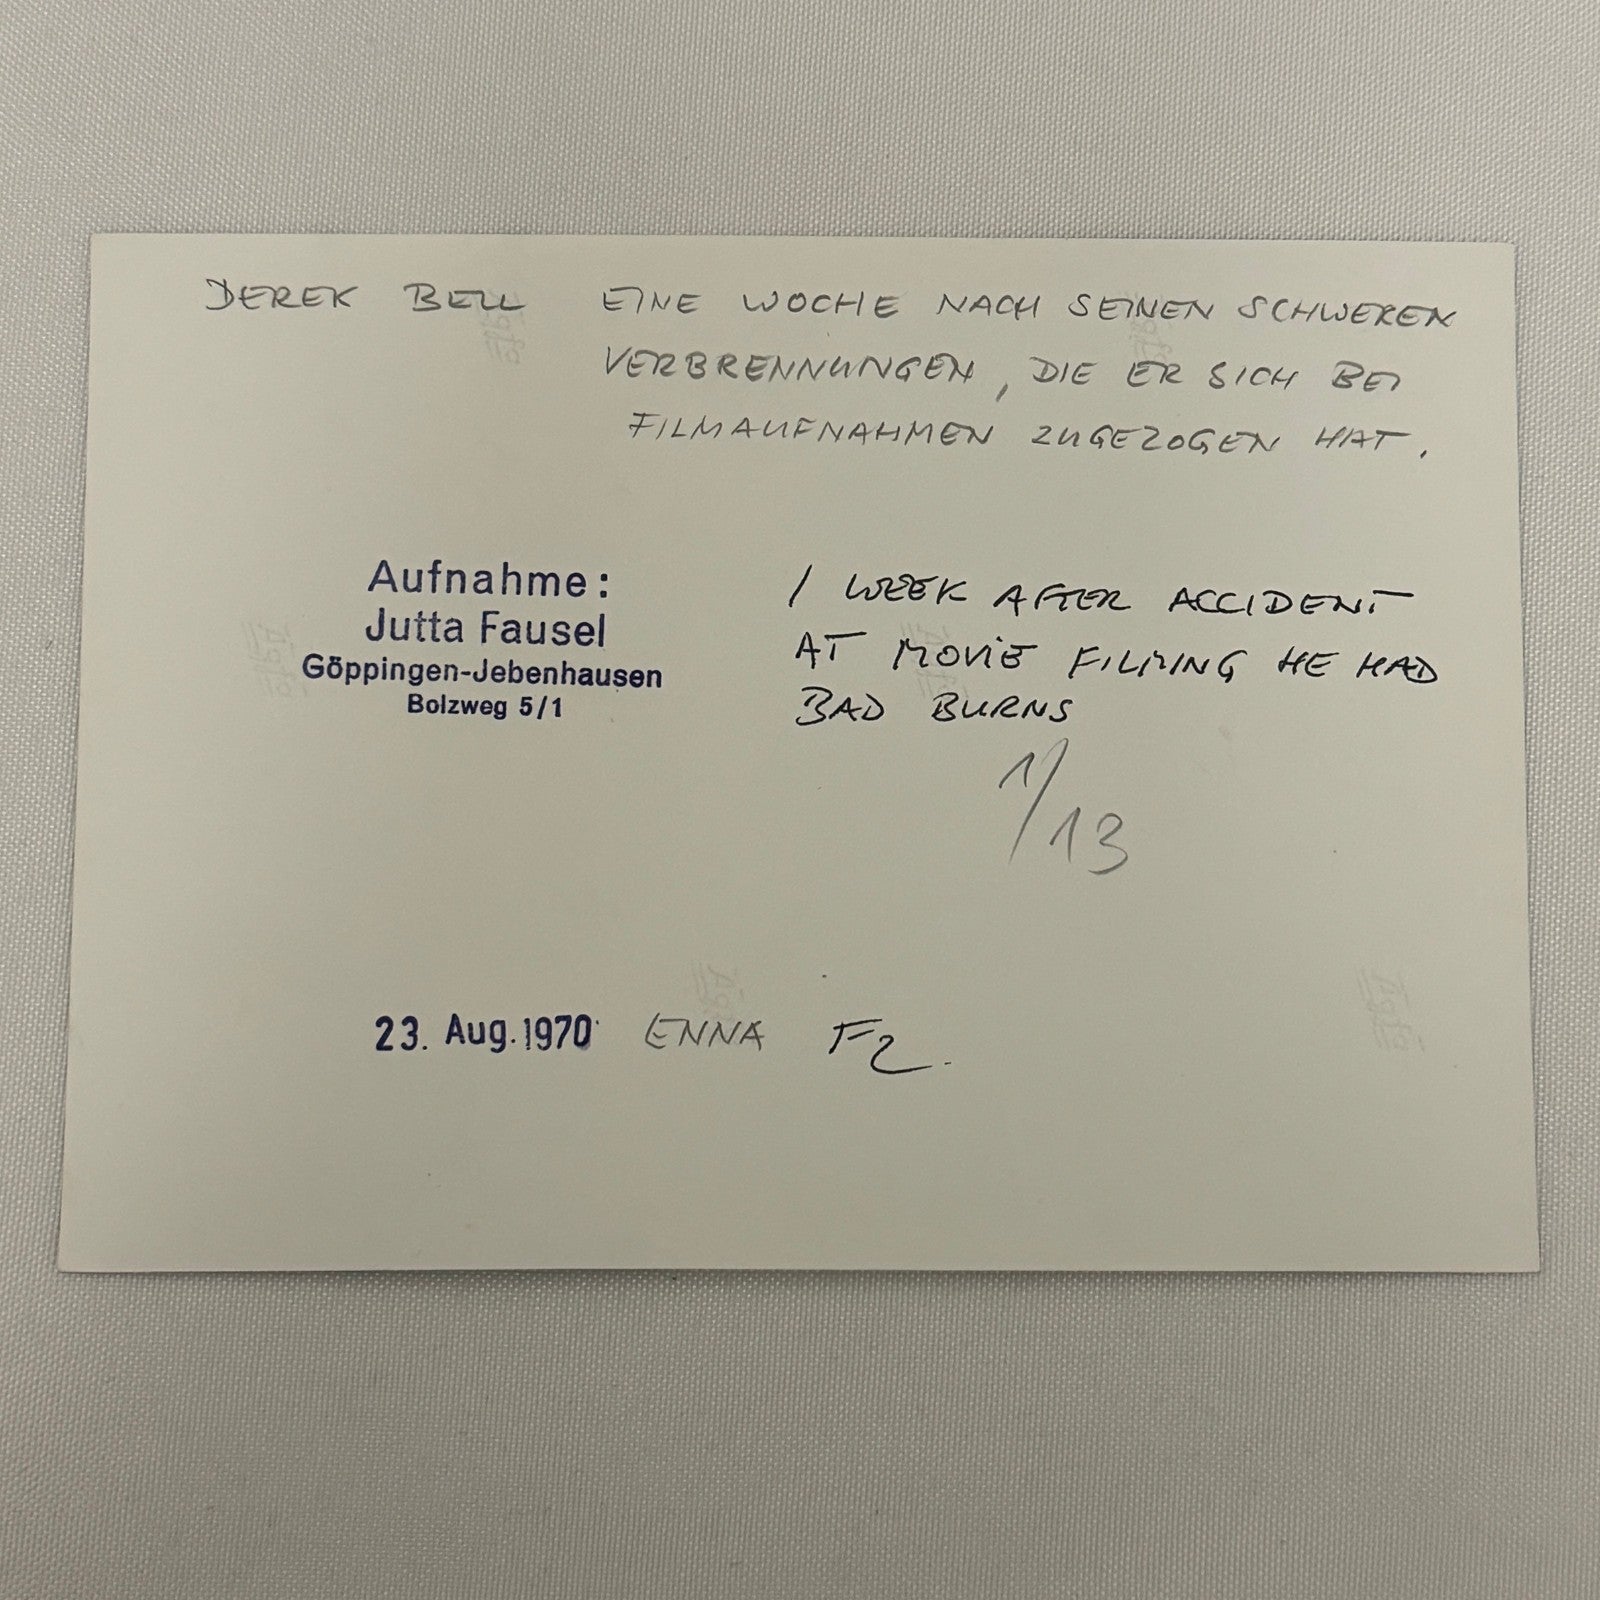 DEREK BELL EINE WOCHE NACH SEINEN SCHWEREN
VERBRENNUNGEN, DIE ER SICH BEI
FILMAUFNAHMEN ZUGEZOGEN HAT.
Aufnahme:
Jutta Fausel
Göppingen-Jebenhausen
Bolzweg 5/1
1 WEEK AFTER ACCIDENT
AT MOVIE FILMING HE HAD
BAD BURNS
1/13
23. Aug. 1970 ENNA F2.